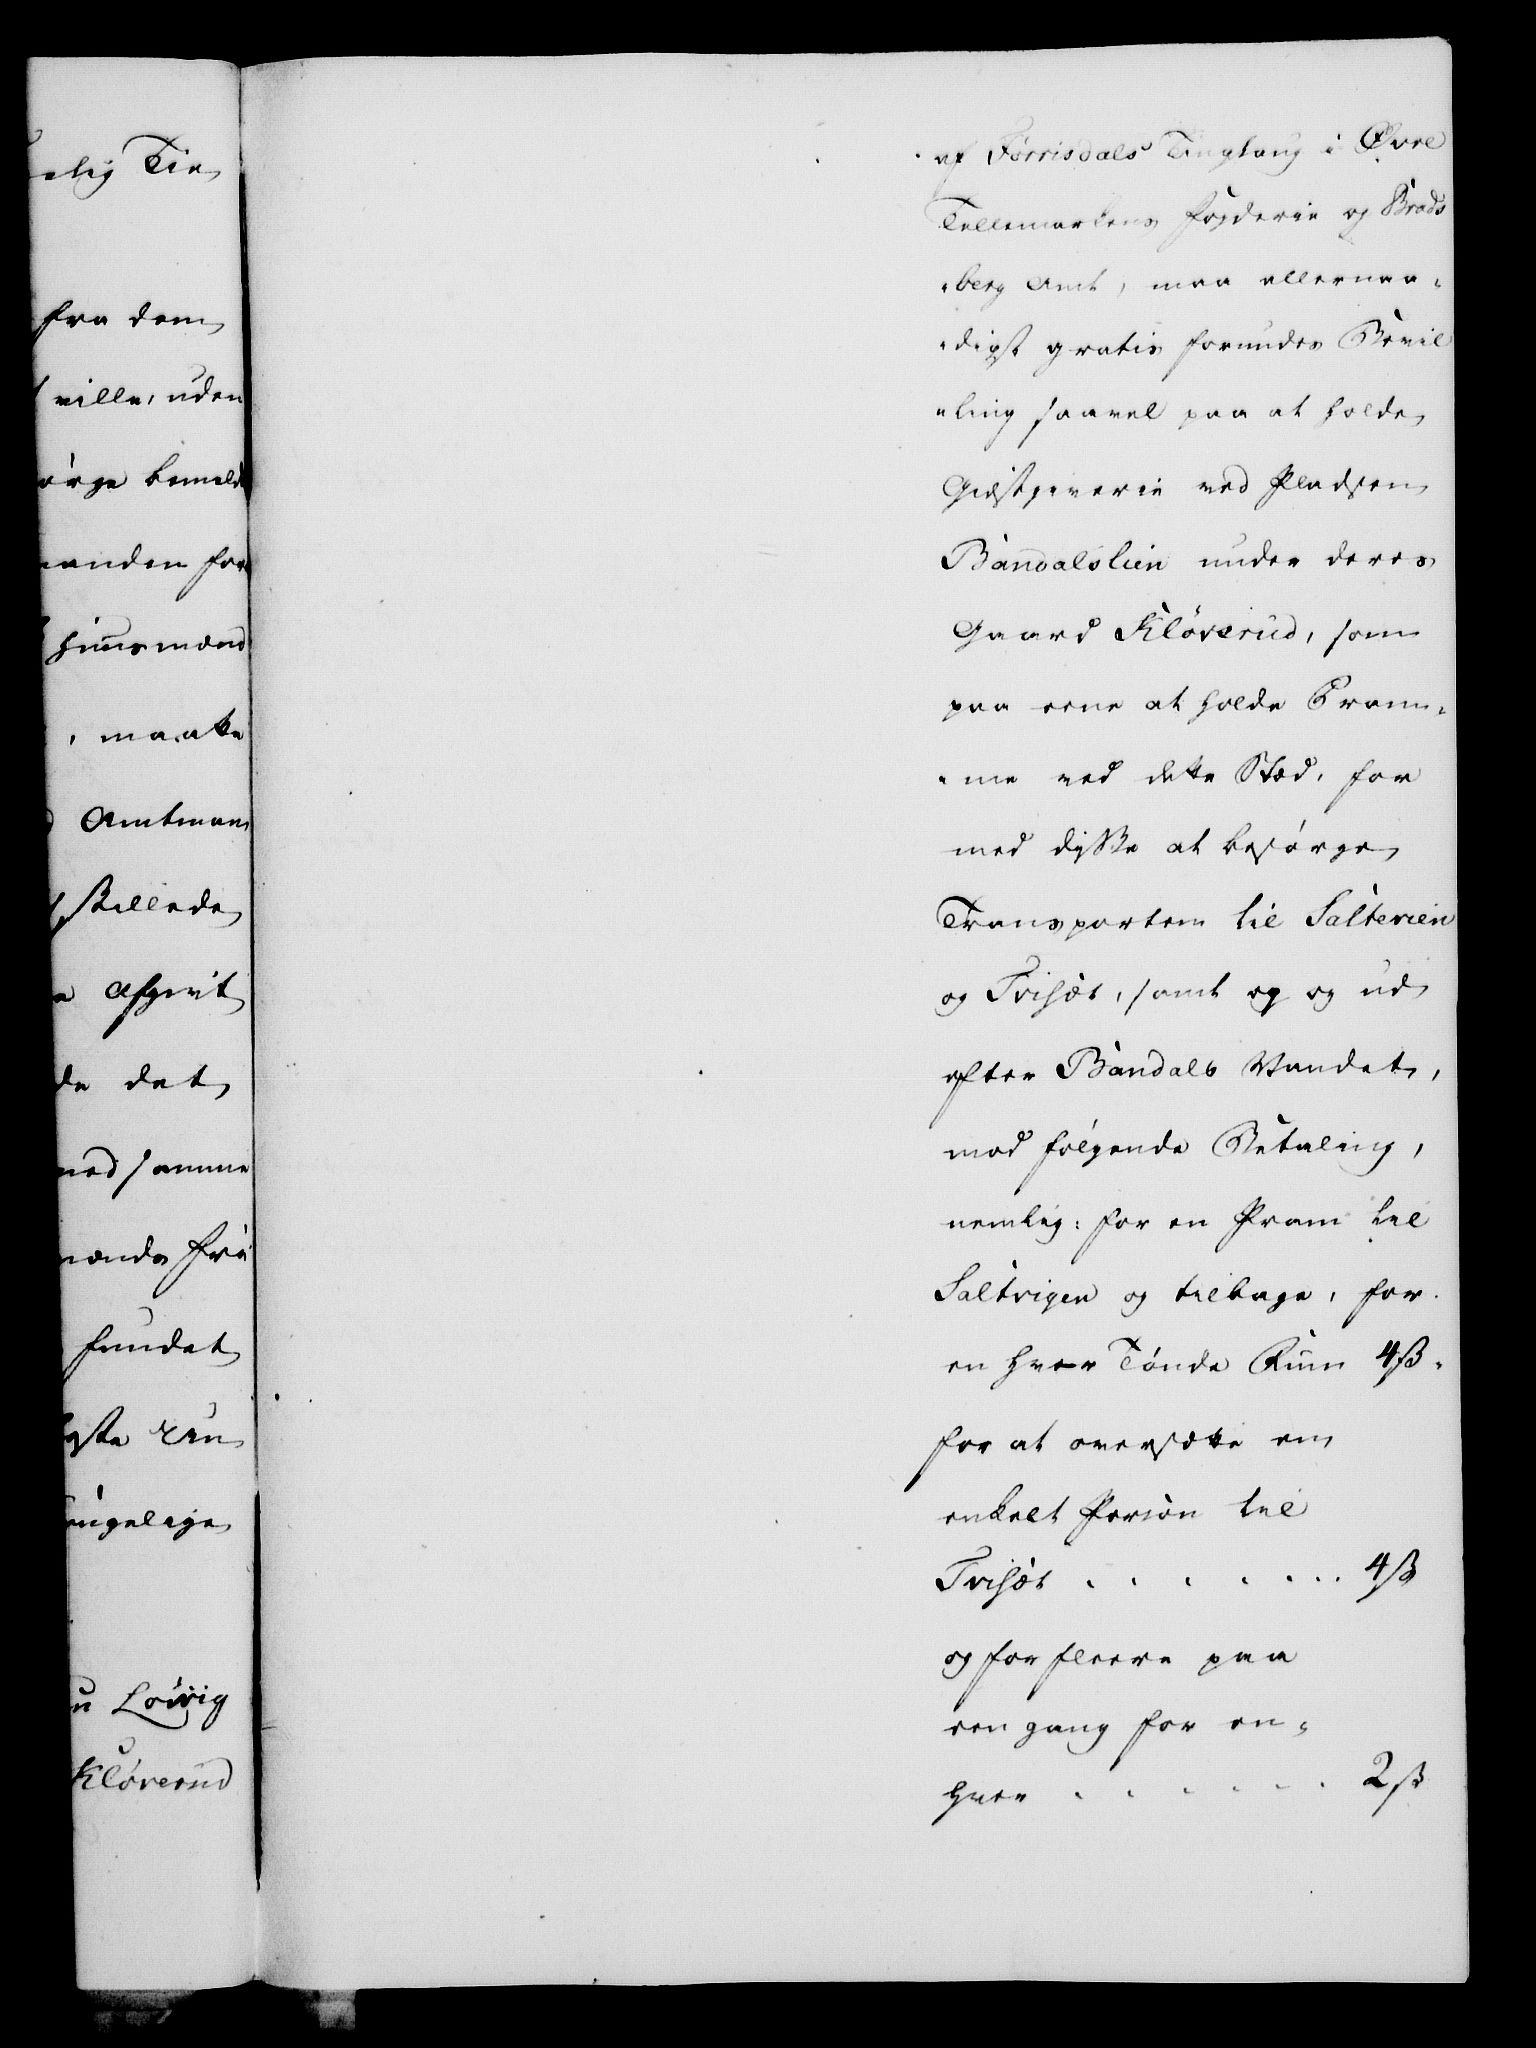 elig Tie
fra dem
ville, uden
örge bemeld
anden for
Huusmænd
, maatte
Amtman
skillede
Afgivt
de det
med samme
mænds fri
fundet
Løvig
Kløverud
af Førrisdals Tinglaug i Øvre
Tellemarkens Fogderie og Brads
berg Amt, maa allernaa-
digst gratis forundes Bevil
ling saavel paa at holde
Giæstgiverie ved Pladsen
Bandalslien under deres
Gaard Kløverud, som
paa eene at holde Pram-
me ved dette Stæd, for
med disse at besørge
Transporten til Saltevien
og Tvisæt, samt op og ud
efter Bandals Vandet,
mod følgende Betaling,
nemlig: for en Pram til
Saltvigen og tilbage, for
en hver Tønde Rum 4 ß.
for at oversætte en
enkelt Person til
Tvisæt . . . . . . . 4 ß
og for fleere paa
een gang for en-
hver . . . . . . 2 ß